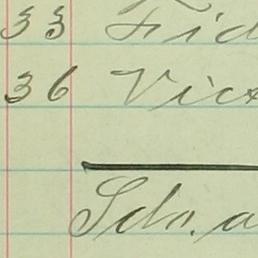 33 Fid
36 Vict
Sch. a